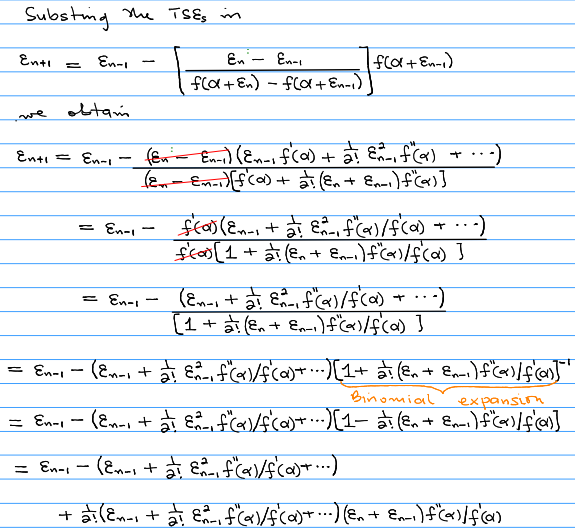 Substing the TSEs in
εn+1 = εn-1 − [ (εn − εn-1) / (f(α+εn) − f(α+εn-1)) ] f(α+εn-1)
we obtain
εn+1 = εn-1 − (εn − εn-1)(εn-1 f'(α) + 1/2! ε²n-1 f"(α) + ···) / (εn − εn-1)[f'(α) + 1/2! (εn + εn-1) f"(α)]
= εn-1 − f'(α)(εn-1 + 1/2! ε²n-1 f"(α)/f'(α) + ···) / f'(α)[1 + 1/2! (εn + εn-1) f"(α)/f'(α) ]
= εn-1 − (εn-1 + 1/2! ε²n-1 f"(α)/f'(α) + ···) / [1 + 1/2! (εn + εn-1) f"(α)/f'(α) ]
= εn-1 − (εn-1 + 1/2! ε²n-1 f"(α)/f'(α)+···)[1 + 1/2! (εn + εn-1) f"(α)/f'(α)]⁻¹
Binomial expansion
= εn-1 − (εn-1 + 1/2! ε²n-1 f"(α)/f'(α)+···)[1 − 1/2! (εn + εn-1) f"(α)/f'(α)]
= εn-1 − (εn-1 + 1/2! ε²n-1 f"(α)/f'(α)+···)
+ 1/2! (εn-1 + 1/2! ε²n-1 f"(α)/f'(α)+···)(εn + εn-1) f"(α)/f'(α)